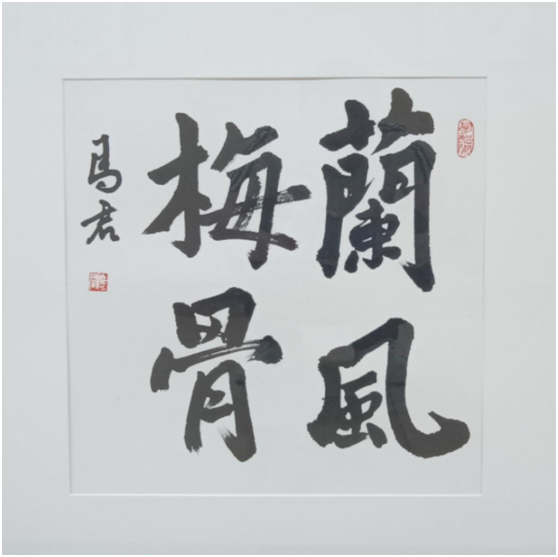 蘭風
梅骨
馬君